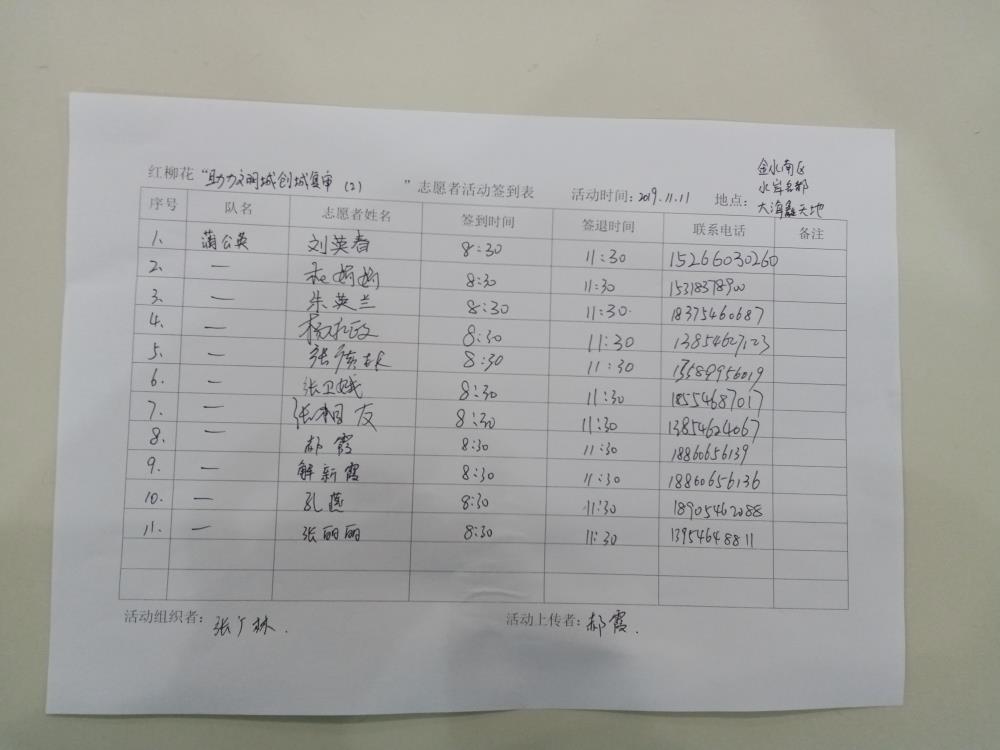 红柳花“助力文明城创城复审（2） ”志愿者活动签到表 活动时间：2019.11.11 地点：金水南区
水岸名都
大海鑫天地
序号 队名 志愿者姓名 签到时间 签退时间 联系电话 备注
1. 蒲公英 刘英春 8:30 11:30 15266030260
2. — 娟娟 8:30 11:30 15318378900
3. — 朱英兰 8:30 11:30 18375460687
4. — 8:30 11:30 13854627123
5. — 张广林 8:30 11:30 13589956019
6. — 张卫娥 8:30 11:30 18554687017
7. — 张相友 8:30 11:30 13854624067
8. — 郝霞 8:30 11:30 18860656139
9. — 解新霞 8:30 11:30 18860656136
10. — 孔燕 8:30 11:30 18905462088
11. — 张丽丽 8:30 11:30 13954648811
活动组织者：张广林. 活动上传者：郝霞.